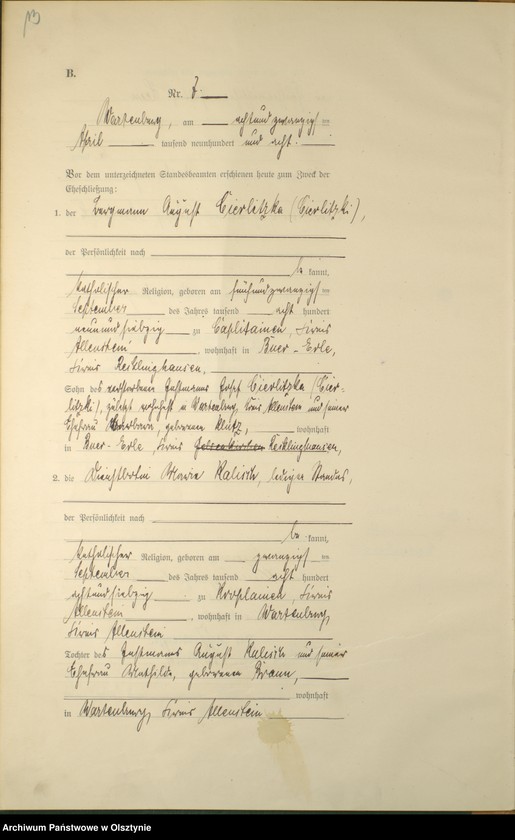 B.
Nr. 7.
Wartenburg, am achtundzwanzigsten
April tausend neunhundert und acht.
Vor dem unterzeichneten Standesbeamten erschienen heute zum Zweck der
Eheschließung:
1. der Bergmann August Cierlitzka (Cierlitzki),
der Persönlichkeit nach
be kannt,
katholischer Religion, geboren am fünfundzwanzigsten
September des Jahres tausend acht hundert
neunundsiebzig zu Kreis
Allenstein, wohnhaft in Buer-Erle,
Kreis Recklinghausen,
Sohn des verstorbenen Instmanns Josef Cierlitzka (Cier-
litzki), zuletzt wohnhaft in Wartenburg, Kreis Allenstein und seiner
Ehefrau Barbara, geborenen wohnhaft
in Buer-Erle, Kreis Gelsenkirchen Recklinghausen,
2. die Dienstbotin Maria Kalisch, ledigen Standes,
der Persönlichkeit nach
be kannt,
katholischer Religion, geboren am zwanzigsten
September des Jahres tausend acht hundert
achtundsiebzig zu Kreis
Allenstein, wohnhaft in Wartenburg,
Kreis Allenstein
Tochter des Instmanns August Kalisch und seiner
Ehefrau Mathilde, geborenen Braun,
wohnhaft
in Wartenburg, Kreis Allenstein
Archiwum Państwowe w Olsztynie